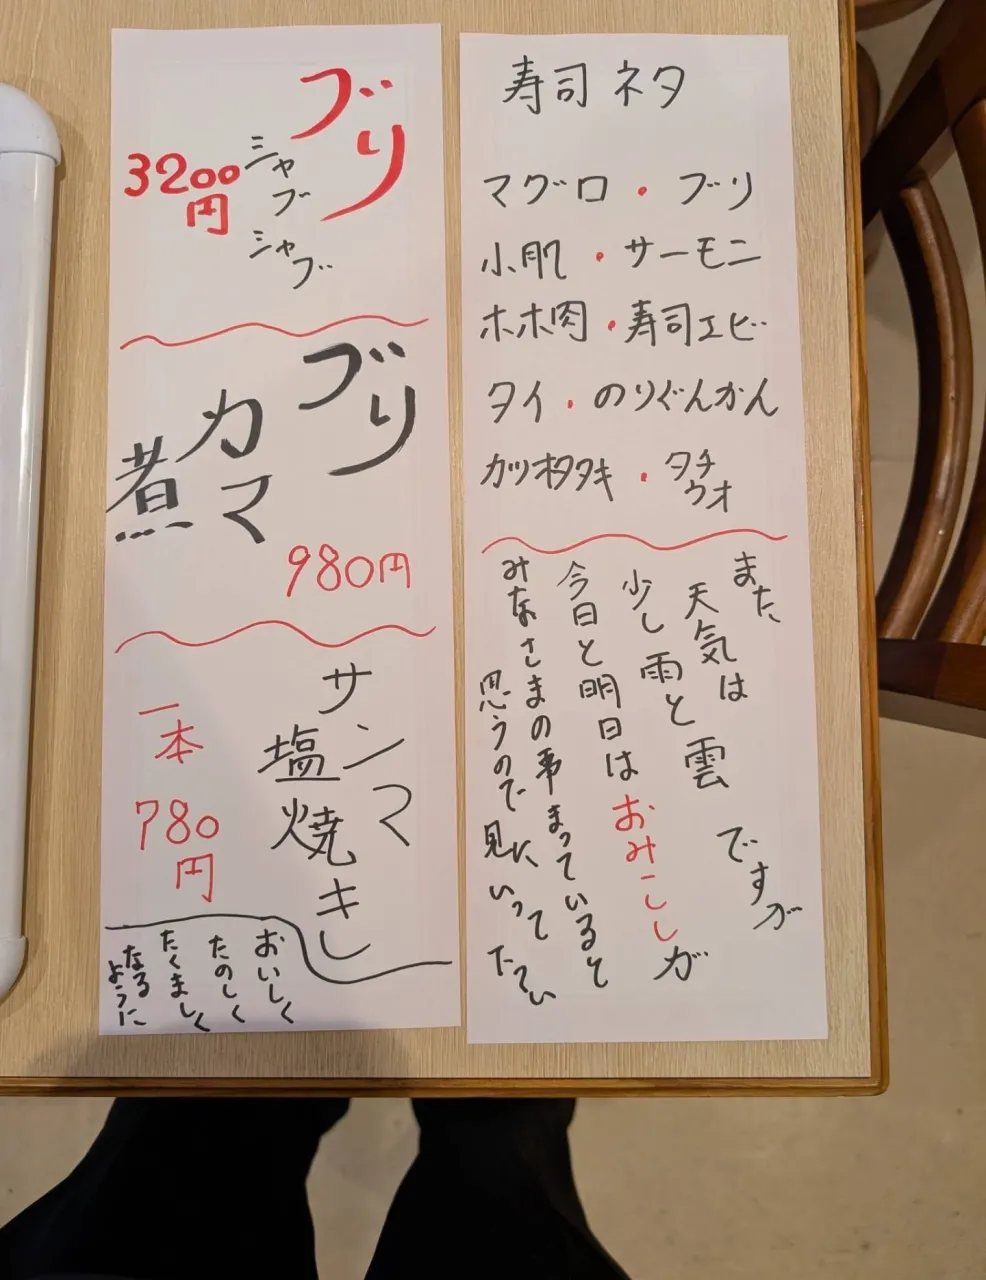 ブリ
シャブ
シャブ
3200
円
ブリ
カマ
煮
980円
サンマ
塩焼キし
一本
780
円
おいしく
たのしく
たくましく
なる
ように
寿司ネタ
マグロ・ブリ
小肌・サーモニ
ホホ肉・寿司エビ
タイ・のりぐんかん
カツオタタキ・タチ
ウオ
また
天気は
少し雨と雲
ですが
今日と明日はおみこしが
みなさまの事まっていると
思うので見にいって
たてい